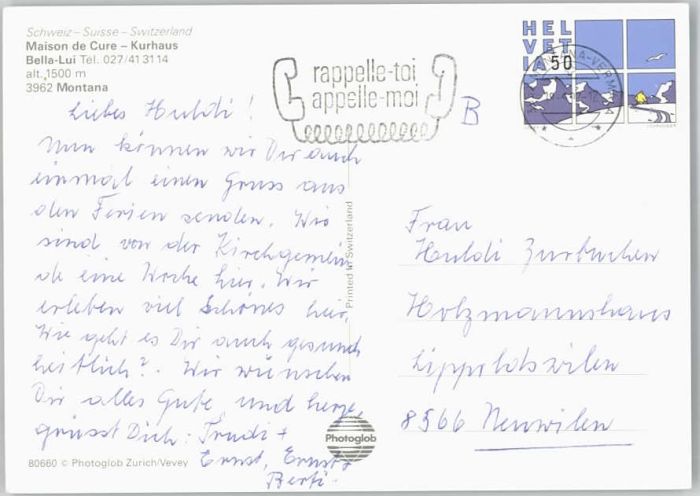 Schweiz – Suisse – Switzerland
Maison de Cure – Kurhaus
Bella-Lui Tel. 027/41 31 14
alt. 1500 m
3962 Montana
rappelle-toi
appelle-moi
HEL
VET
IA 50
B
Liebes Huldi!
Nun können wir Dir auch
einmal einen Gruss aus
den Ferien senden. Wir
sind von der Kirchgemein
de eine Woche hier. Wir
erleben viel Schönes hier.
Wie geht es Dir auch gesund
heitlich? Wir wünschen
Dir alles Gute und herze
grüsst Dich: Trudi +
Ernst, Ernst +
Berti.
Printed in Switzerland
Frau
Huldi Zurbuchen
Holzmannshaus
Lippoldswilen
8566 Neuwilen
Photoglob
80660 © Photoglob Zurich/Vevey